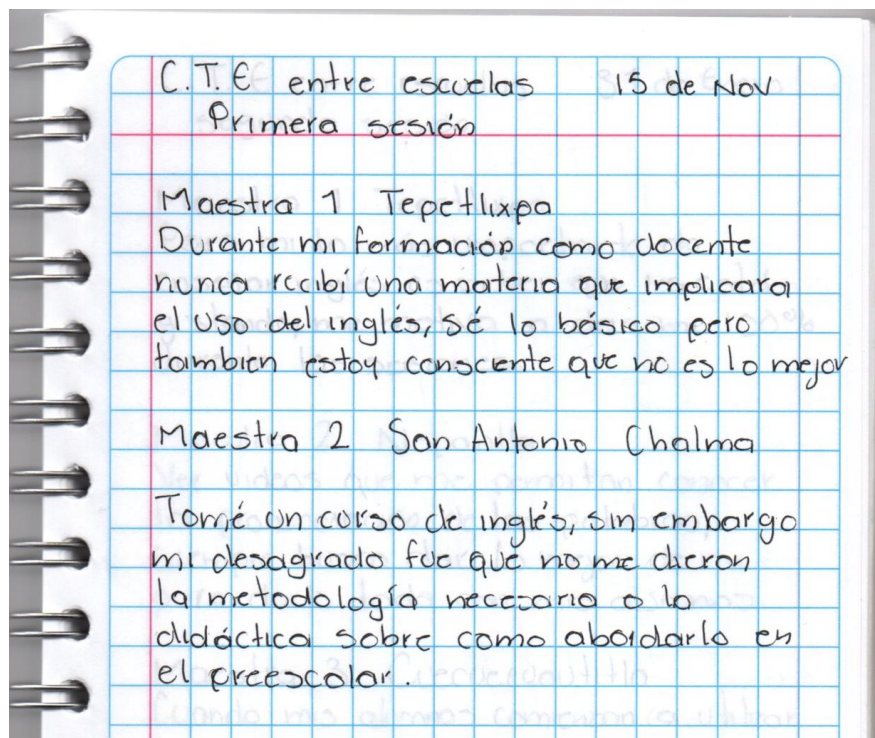 C.T.E entre escuelas 15 de Nov
Primera sesión
Maestra 1 Tepetlixpa
Durante mi formación como docente
nunca recibí una materia que implicara
el uso del inglés, sé lo básico pero
tambien estoy conscente que no es lo mejor
Maestra 2 San Antonio Chalma
Tomé un curso de inglés, sin embargo
mi desagrado fue que no me dieron
la metodología necesaria o la
didáctica sobre como abordarlo en
el preescolar.